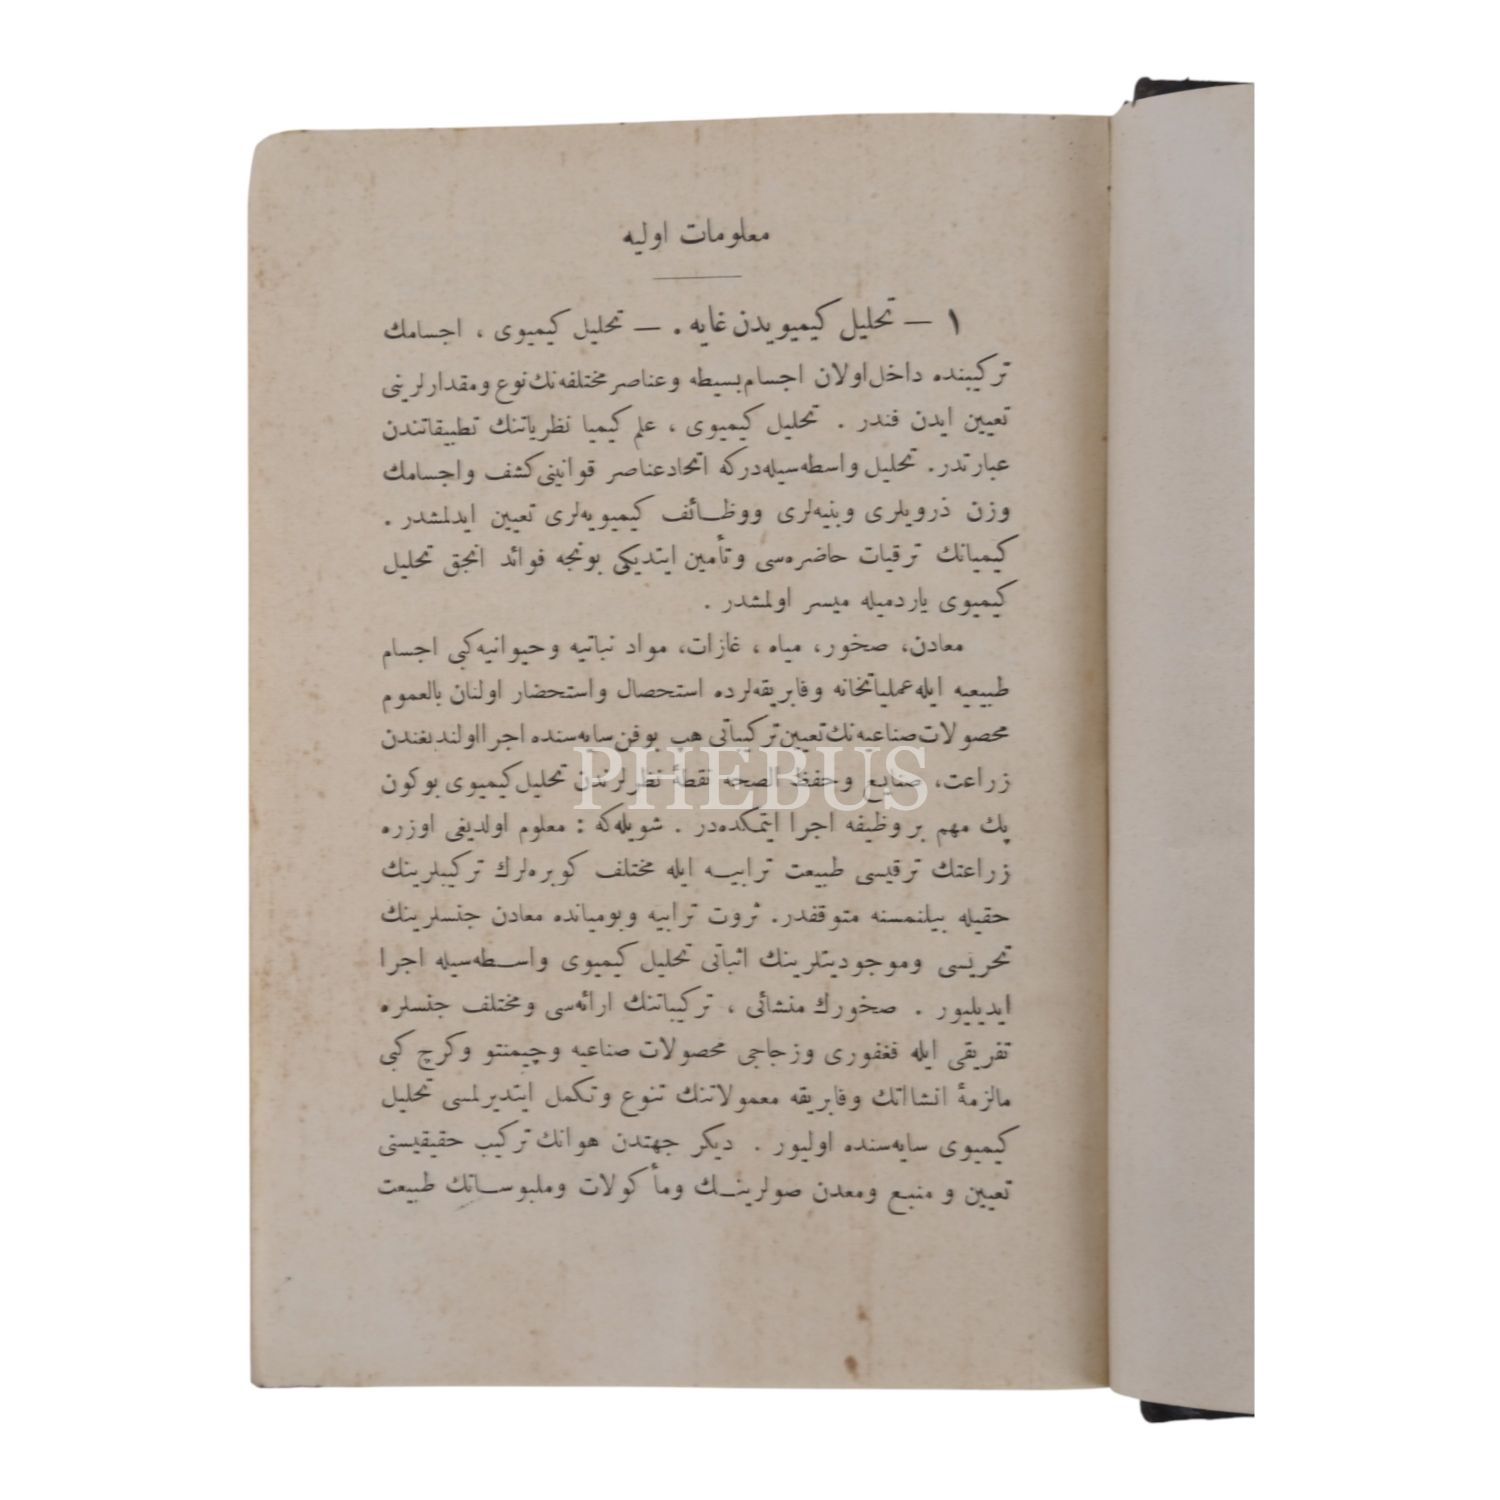 معلومات اوليه
١ — تحليل كيميويدن غايه . — تحليل كيميوى ، اجسامك
تركيبنده داخل اولان اجسام بسيطه وعناصر مختلفه‌نك نوع ومقدارلرينى
تعيين ايدن فندر . تحليل كيميوى ، علم كيميا نظرياتنك تطبيقاتندن
عبارتدر. تحليل واسطه‌سيله‌دركه اتحاد عناصر قوانينى كشف واجسامك
وزن ذرويلرى وبنيه‌لرى ووظائف كيميويه‌لرى تعيين ايدلمشدر .
كيميانك ترقيات حاضره‌سى وتأمين ايتديكى بونجه فوائد انجق تحليل
كيميوى ياردميله ميسر اولمشدر .
معادن، صخور، مياه ، غازات، مواد نباتيه وحيوانيه كبى اجسام
طبيعيه ايله عملياتخانه وفابريقه‌لرده استحصال واستحضار اولنان بالعموم
محصولات صناعيه‌نك تعيين تركيباتى هپ بوفن سايه‌سنده اجرا اولنديغندن
زراعت، صنايع وحفظ الصحه نقطۀ نظرلرندن تحليل كيميوى بوكون
پك مهم بر وظيفه اجرا ايتمكده‌در . شويله‌كه : معلوم اولديغى اوزره
زراعتك ترقيسى طبيعت ترابيه ايله مختلف كوبره‌لرك تركيبلرينك
حقيله بيلنمسنه متوقفدر. ثروت ترابيه وبوميانده معادن جنسلرينك
تحريسى وموجوديتلرينك اثباتى تحليل كيميوى واسطه‌سيله اجرا
ايديليور . صخورك منشائى ، تركيباتنك ارائه‌سى ومختلف جنسلره
تفريقى ايله فغفورى وزجاجى محصولات صناعيه وچيمنتو وكرچ كبى
مالزمۀ انشاآتك وفابريقه معمولاتنك تنوع وتكمل ايتديرلمسى تحليل
كيميوى سايه‌سنده اوليور . ديكر جهتدن هوانك تركيب حقيقيسنى
تعيين و منبع ومعدن صولرينك ومأكولات وملبوساتك طبيعت
PHEBUS